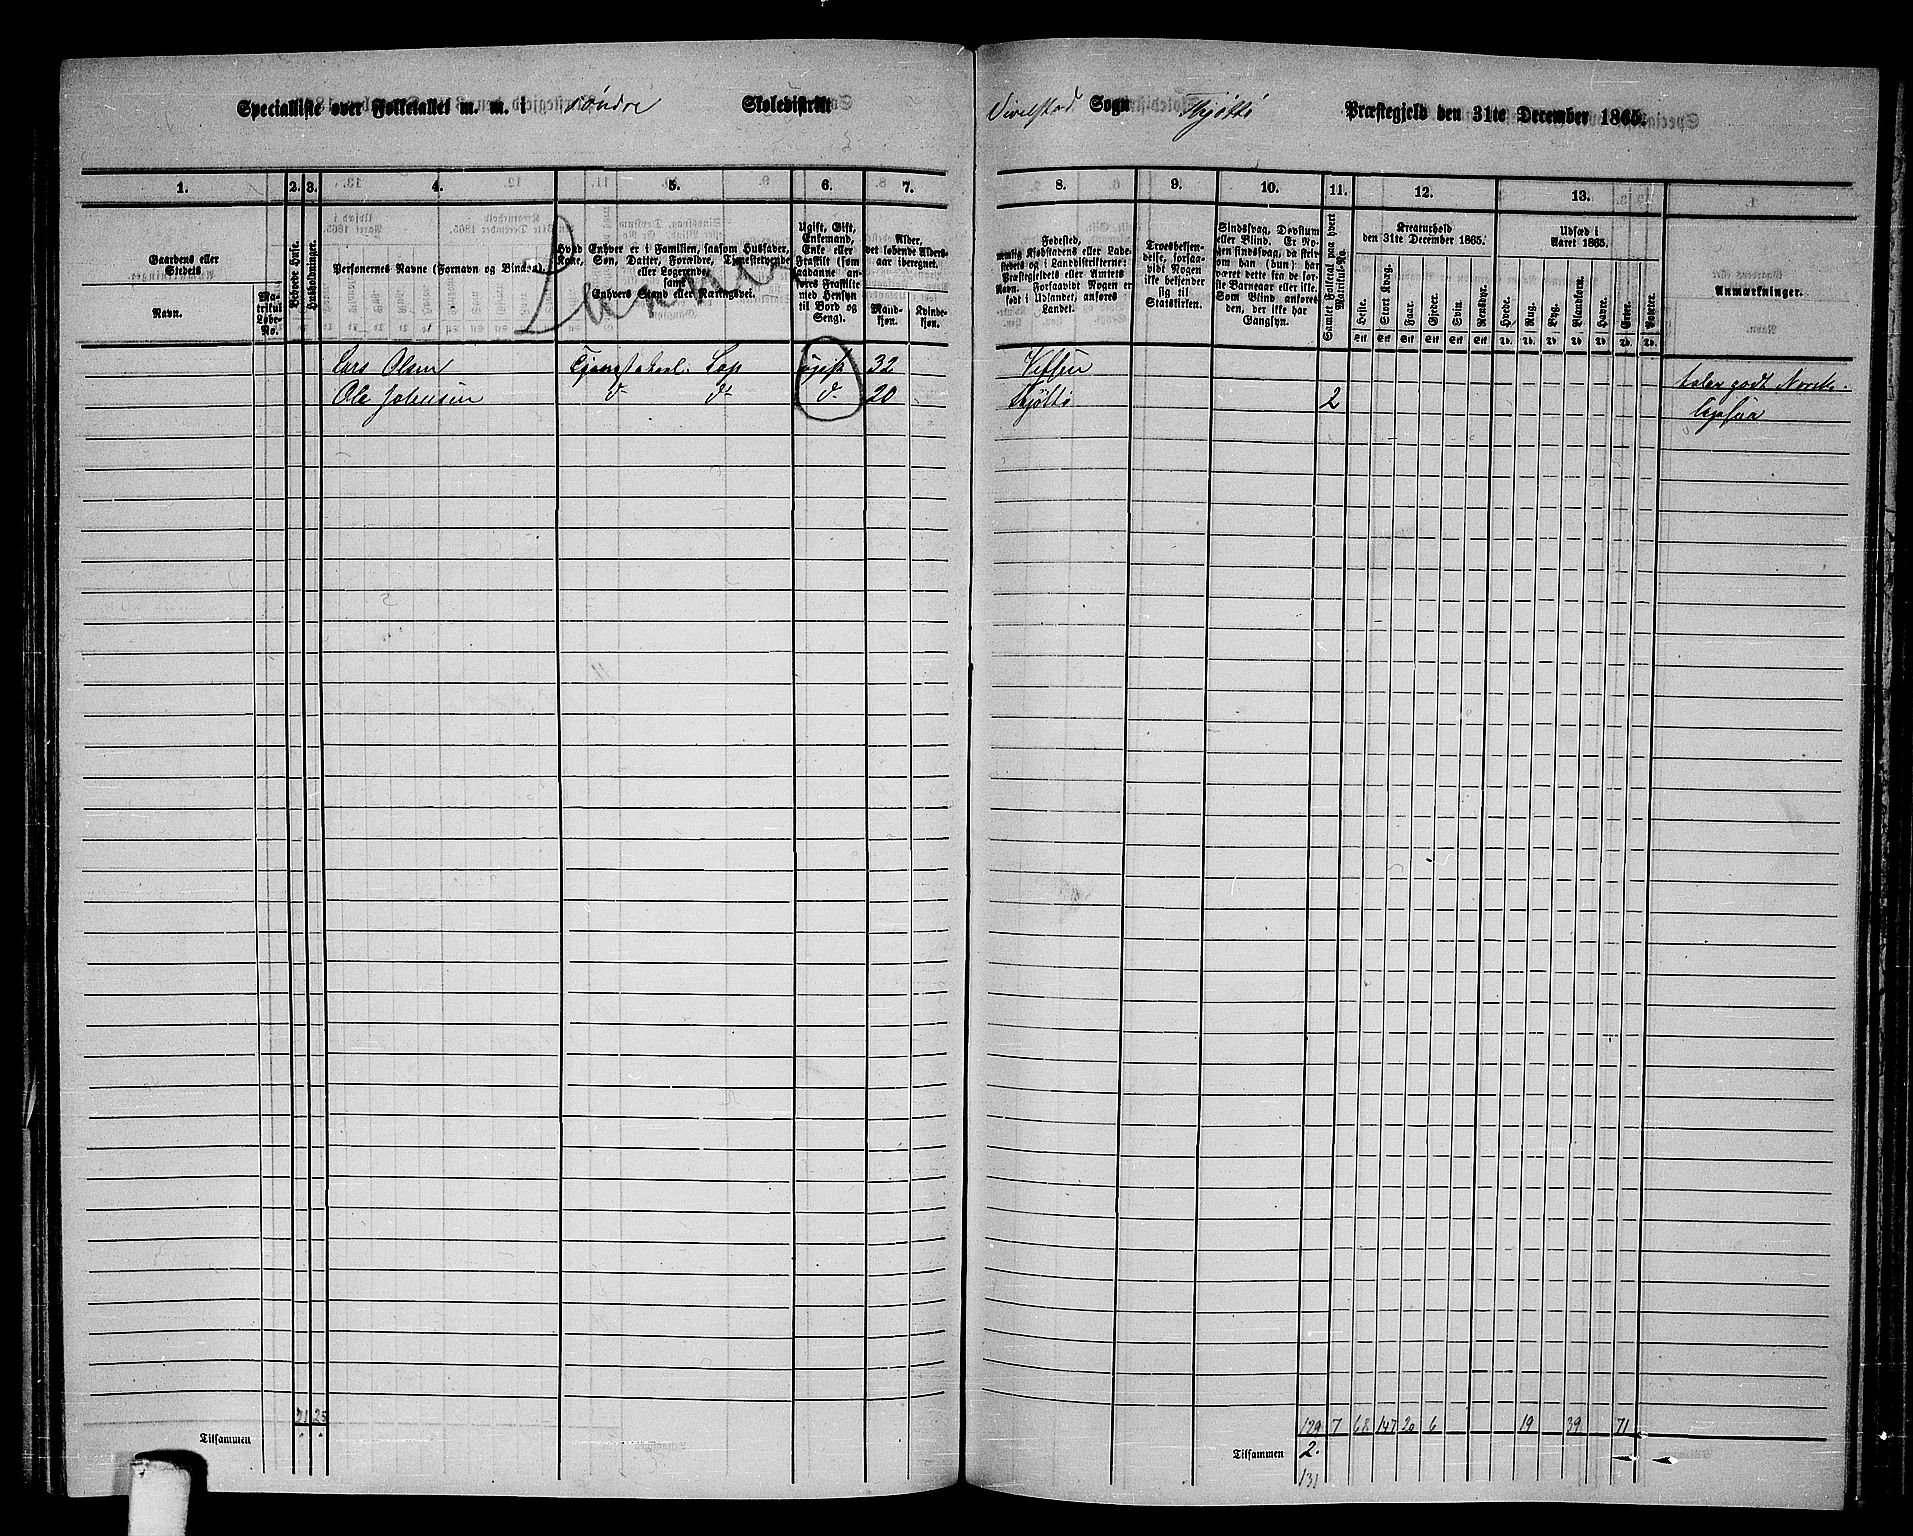 Specialliste over Folketallet m. m. i Søndre Skoledistrikt
1. 2. 3. 4. 5. 6. 7.
Gaardens eller Stedets
Navn.
Matrikul Løbe-No.
Beboede Huse.
Husholdninger.
Personernes Navne (Fornavn og Binavn).
Hvad Enhver er i Familien, saasom Husfader, Kone, Søn, Datter, Forældre, Tjenestetyende eller Logerende, samt Enhvers Stand eller Næringsvei.
Ugift, Gift, Enkemand, Enke eller Fraskilt (som saadanne anføres Fraskilte med Hensyn til Bord og Seng).
Alder, det løbende Aldersaar iberegnet.
Mandkjøn.
Kvindekjøn.
Lars Olsen Lap ugift 32
Ole Johnsen d⁰ d⁰ d⁰ 20
21 25
Tilsammen
Sogn Thjøttø Præstegjeld den 31te December 1865.
8. 9. 10. 11. 12. 13.
Fødested, nemlig Kjøbstadens eller Ladestedets og i Landdistrikterne: Præstegjeldets eller Amtets Navn. Forsaavidt Nogen er født i Udlandet, anføres Landet.
Troesbekjendelse, forsaavidt Nogen ikke bekjender sig til Statskirken.
Sindssvag, Døvstum eller Blind. Er Nogen sindssvag, da skrives om han (hun) har været dette fra de første Barneaar eller ikke. Som Blind anføres den, der ikke har Gangsyn.
Samlet Folketal paa hvert Matrikul-No.
Kreaturhold den 31te December 1865.
Heste. Stort Kvæg. Faar. Gjeder. Svin. Rensdyr.
Udsæd i Aaret 1865.
Hvede. Rug. Byg. Blandkorn. Havre. Erter. Poteter.
Anmærkninger.
taler godt Norsk.
Thjøttø 2
129 7 68 147 20 6 19 39 71
Tilsammen 2.
131